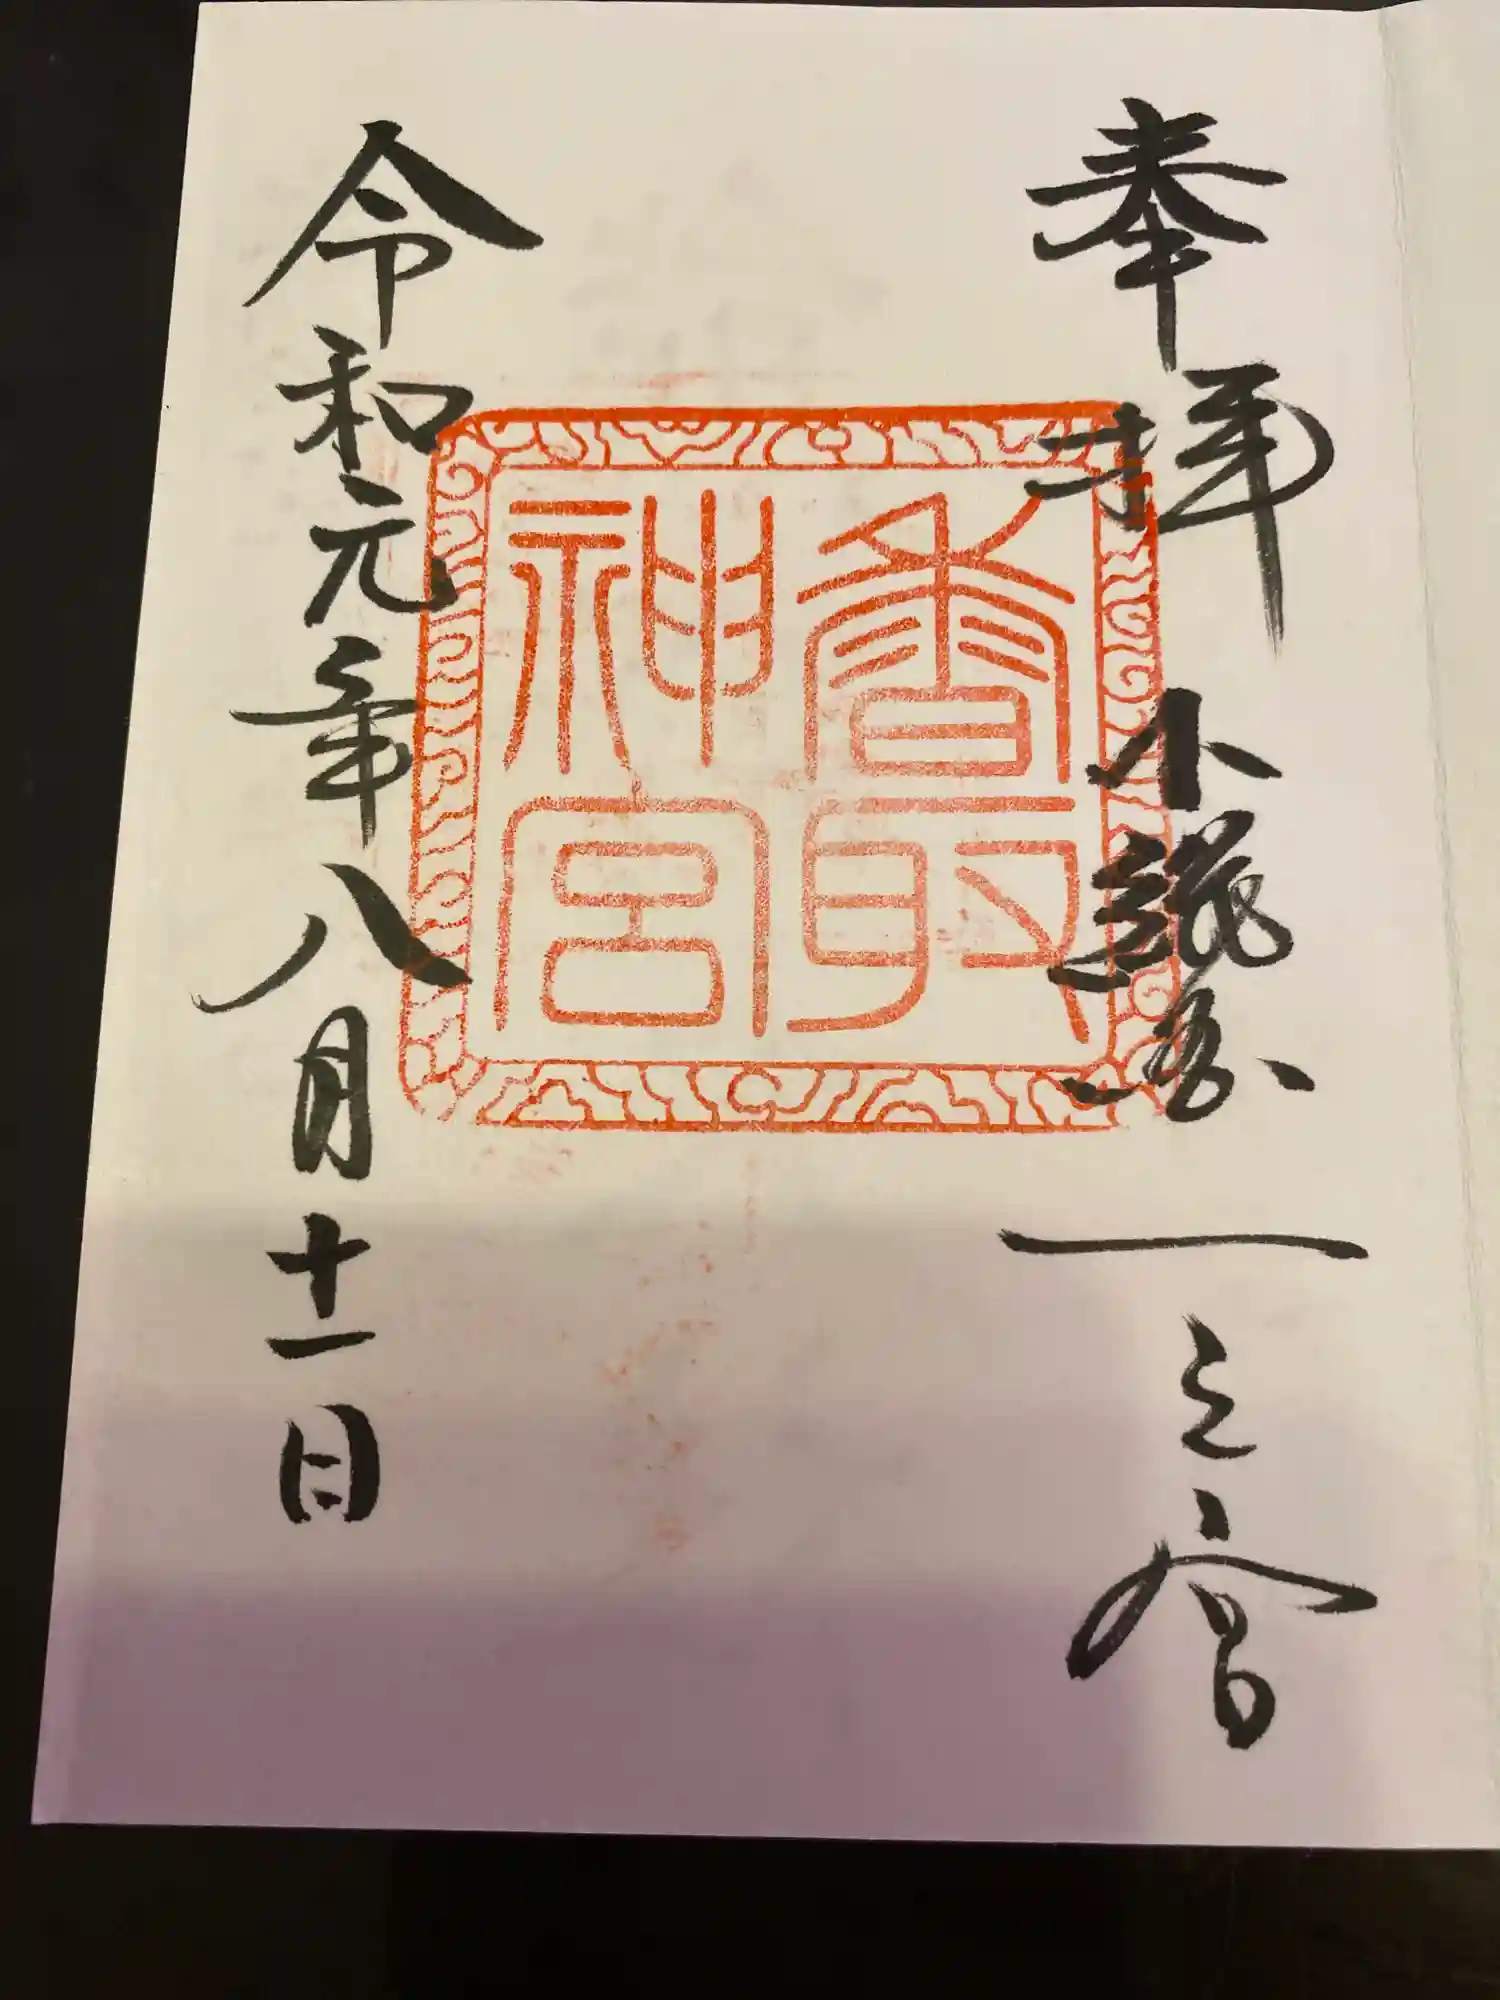 奉拝 下總國一之宮
香取
神宮
令和元年八月十一日